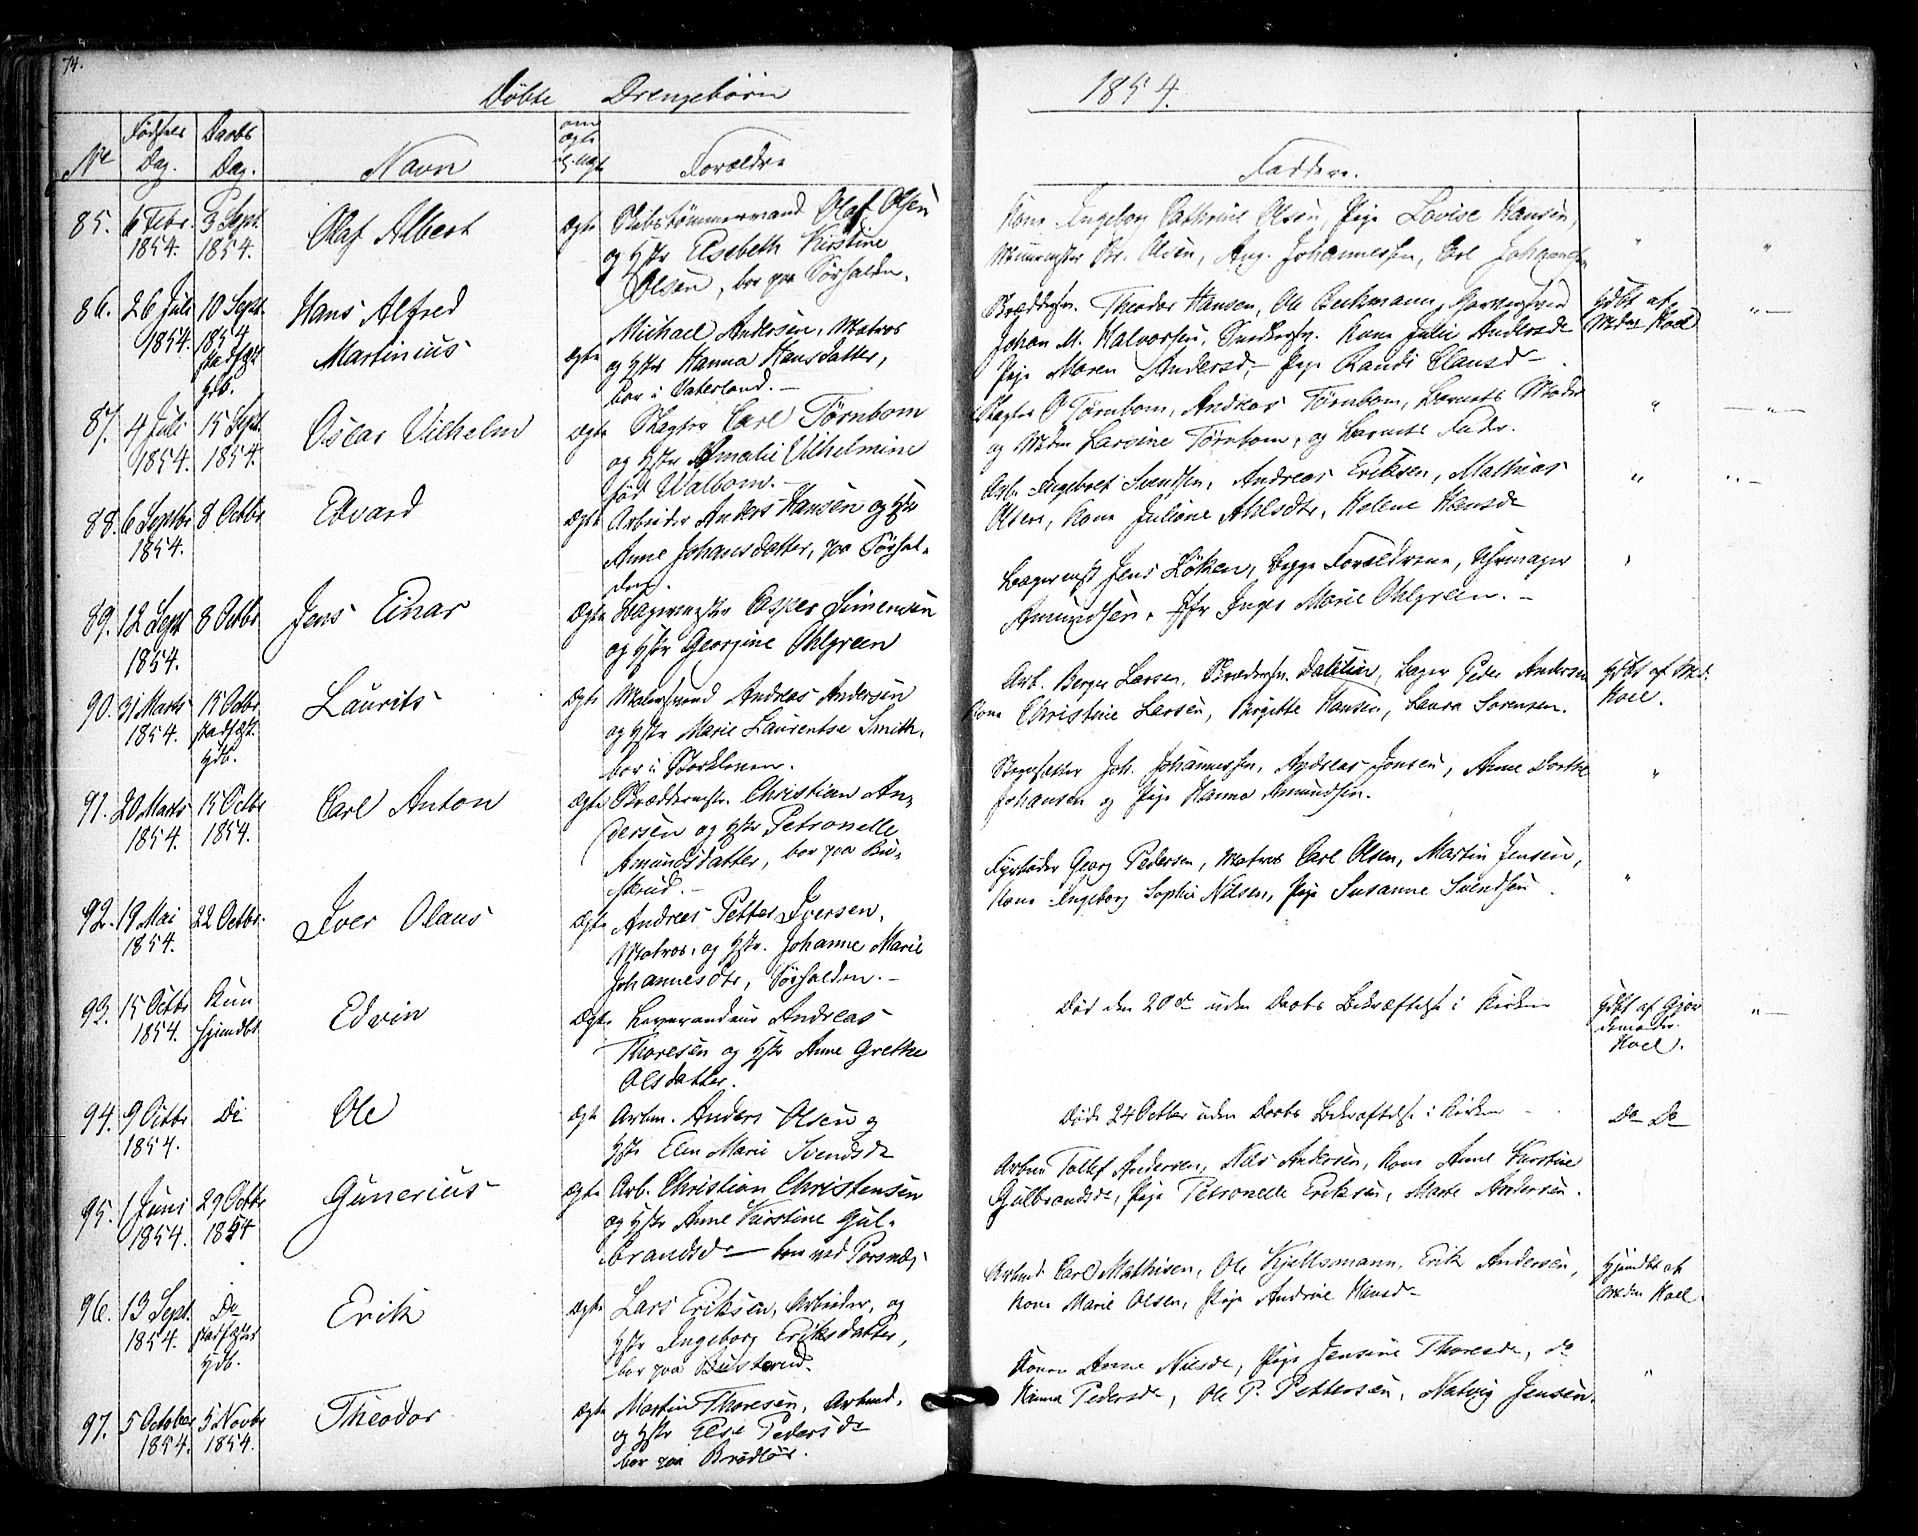 74.
Döbte Drengebörn
1854.
No
Födsels Dag.
Daabs Dag.
Navn
om ægte el. uægte
Forældre
Faddere.
85. 6 Febr. 1854. 3 Sept. 1854. Olaf Albert ægte
Skibstömmermand Olaf Olsen
og Hstr Elsebeth Kirstine
Olsen, bor paa Sörhalden.
Kone Ingeborg Cathrine Olsen, Pige Lovise Hansen,
Olsen, Aug. Johannessen, Carl Johannessen
86. 26 Juli 1854. 10 Sept. 1854 stadfæst. Hdb. Hans Alfred Martinius ægte
Michael Andersen, Matros
og Hstr Hanna Hansdatter,
bor i Vaterland.
Theodor Hansen, Ole Beckmann, Garversvend
Johan M. Halvorsen, Kone Julie Andersdr
Pige Maren Andersdr, Pige Randi Clausdr
Hdbt af Mdm Hoel
87. 4 Juli 1854. 15 Sept. 1854. Oscar Vilhelm ægte
Slagter Carl Törnbom
og Hstr Amalie Vilhelmine
föd Walbom.
Slagter O Törnbom, Andreas Törnbom, Barnets Moder
og Mdm Larsine Törnbom, og Barnets Fader.
88. 6 Septbr 1854. 8 Octbr Edvard ægte
Arbeider Anders Hansen og Hstr
Anne Johansdatter, paa Sörhal-
den.
Arb. Ingebret Svendsen, Andreas Eriksen, Mathias
Olsen, Kone Juliane Ahlsdtr, Helene Hansdr
89. 12 Sept 1854. 8 Octbr Jens Einar ægte
Bagermester Casper Simensen
og Hstr Georgine Ohlgreen
Bagermst Jens Löken, begge Forældrene, Uhrmager
Amundsen, Jfr Inger Marie Ohlgreen.
90. 31 Marts 1854. 15 Octbr stadfæst. Hdb. Laurits ægte
Malersvend Andreas Andersen
og Hstr Marie Laurentse Smith,
bor i
Arb. Berger Larsen, Bager Peder Andersen
Kone Christine Larsen, Birgitte Hansen, Laura Sorensen.
Hdbt af Md. Hoel.
91. 20 Marts 1854. 15 Octbr 1854. Carl Anton ægte
Skræddermstr. Christian An-
dersen og Hstr Petronelle
Amundsdatter, bor paa Bu-
skrud.
Joh. Johannessen, Andreas Jonsen, Anne Dorthe
Johansen og Pige Hanna Amundsen.
92. 19 Mai 1854. 22 Octbr. Iver Olaus ægte
Andreas Petter Iversen,
Matros, og Hstr. Johanne Marie
Johannesdtr, Sörhalden.
Fyrböder Georg Pedersen, Matros Carl Olsen, Martin Jensen,
Kone Ingeborg Sophie Nilsen, Pige Susanne Svendsen
93. 15 Octbr 1854. Kun hjemdbt. Edvin ægte
Leverandeur Andreas
Thoresen og Hstr Anne Grethe
Olsdatter.
Död den 20de uden Daabs Bekræftelse i Kirken
Hdbt af Gjordemoder Hoel.
94. 9 Octbr 1854. Do Ole ægte
Arbm. Anders Olsen og
Hstr Elen Marie Svendsdr
Döde 24 Octbr uden Daabs Bekræftelse i Kirken
Do Do
95. 1 Juni 1854. 29 Octbr 1854 Gunerius ægte
Arb. Christian Christensen
og Hstr Anne Kirstine Gul-
brandsdr
Arbm Tollef Andersen, Nils Andersen, Kone Anne Kirstine
Gulbrandsdr, Pige Petronelle Eriksen, Marte Andersen.
96. 13 Sept. 1854. Do stadfæstet Hdb. Erik ægte
Lars Eriksen, Arbeider, og
Hstr Ingeborg Eriksdatter,
bor paa Busterud.
Arbmd. Carl Mathisen, Ole Kjellemann, Erik Andersen,
Kone Marie Olsen, Pige Andrine Hansdr
Hjemdbt af Mdm Hoel.
97. 5 October 1854. 5 Novbr 1854. Theodor ægte
Martin Thoresen, Arbmd.
og Hstr Else Pedersdr
bor paa Brödlös.
Konen Anne Nilsdr, Pige Jensine Thoresdr, do
Hanna Pedersdr, Ole P. Pettersen, Natvig Jensen.